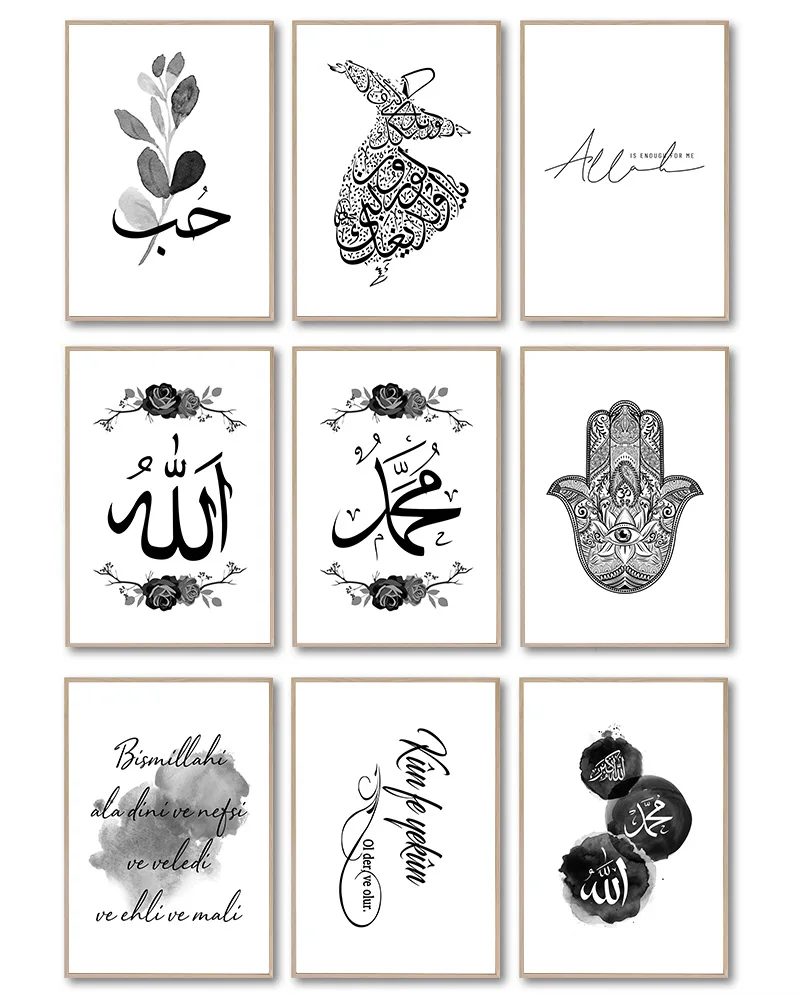 حُب
Allah
IS ENOUGH FOR ME
اللّٰهُ
مُحَمَّدٌ
Bismillahi
ala dini ve nefsi
ve veledi
ve ehli ve mali
Kûn fe yekûn
Ol der ve olur.
الله أكبر
محمد
الله